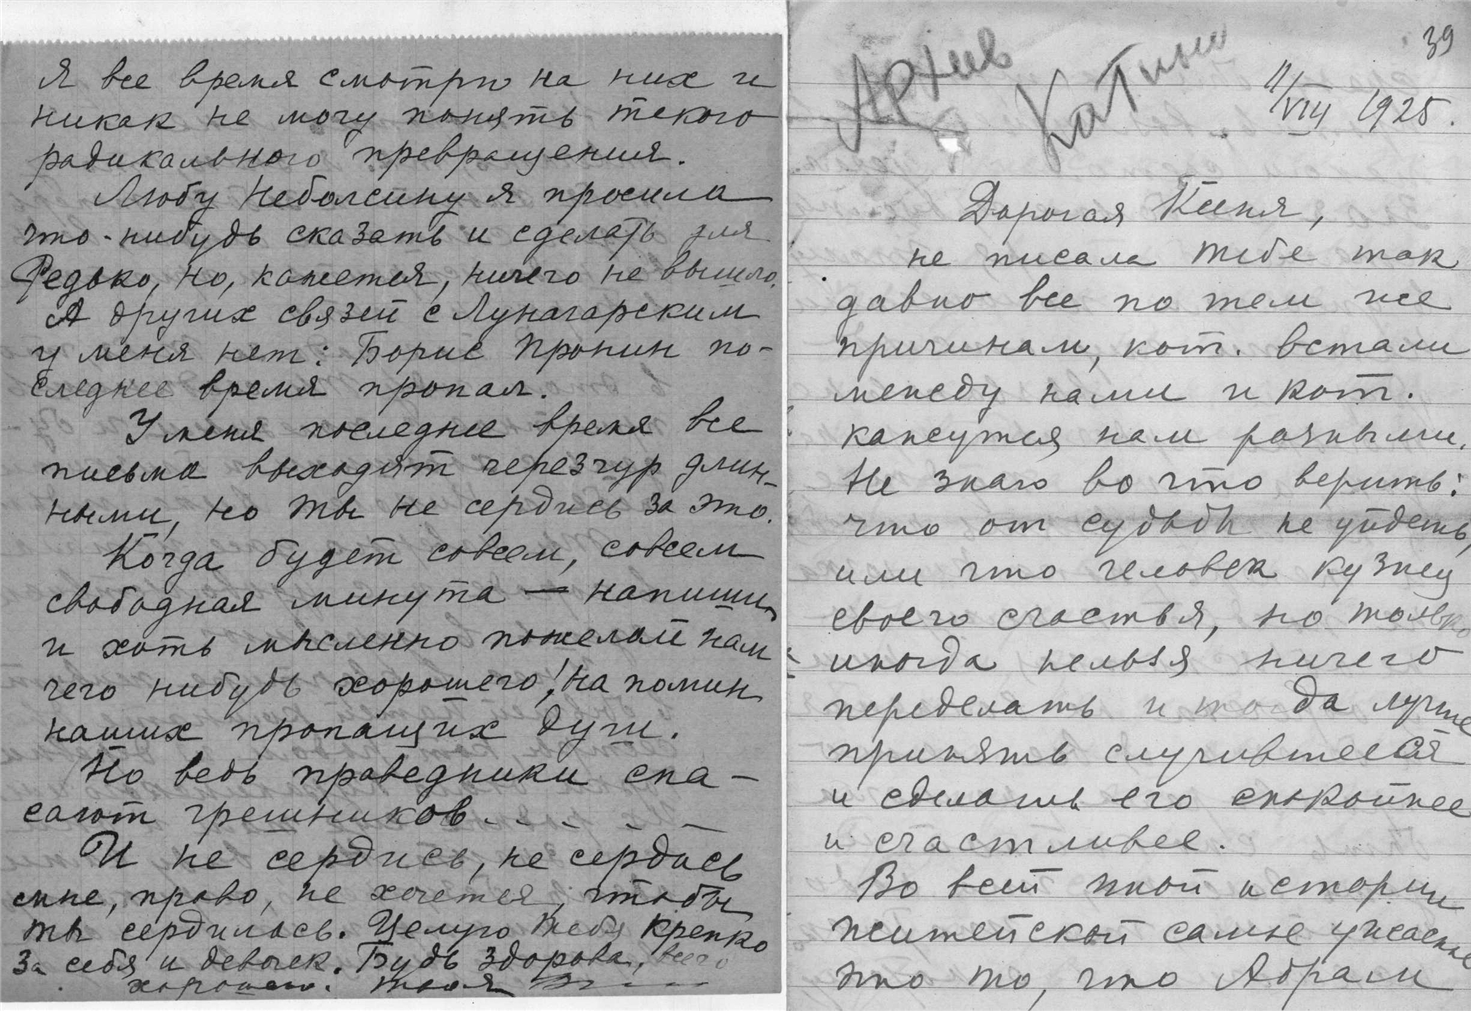 Я все время смотрю на них и
никак не могу понять такого
радикального превращения.
Любу Неболсину я просила
что-нибудь сказать и сделать для
Редько, но, кажется, ничего не вышло.
А других связей с Луначарским
у меня нет: Борис Пронин по-
следнее время пропал.
У меня последнее время все
письма выходят черезчур длин-
ными, но ты не сердись за это.
Когда будет совсем, совсем
свободная минута — напиши
и хоть мысленно пожелай нам
чего нибудь хорошего! На помин
наших пропащих душ.
Но ведь праведники спа-
сают грешников....
И не сердись, не сердись
мне, право, не хочется, чтобы
ты сердилась. Целую тебя крепко
за себя и девочек. Будь здорова, всего
хорошего. Твоя
39
Архив
11/VIII 1925.
Дорогая Ксеня,
не писала тебе так
давно все по тем же
причинам, кот. встали
между нами и кот.
кажутся нам разными.
Не знаю во что верить:
что от судьбы не уйдешь,
или что человек кузнец
своего счастья, но только
иногда нельзя ничего
переделать и тогда лучше
принять случившееся
и сделать его спокойнее
и счастливее.
Во всей этой истории
житейской самое ужасное
это то, что Абрам